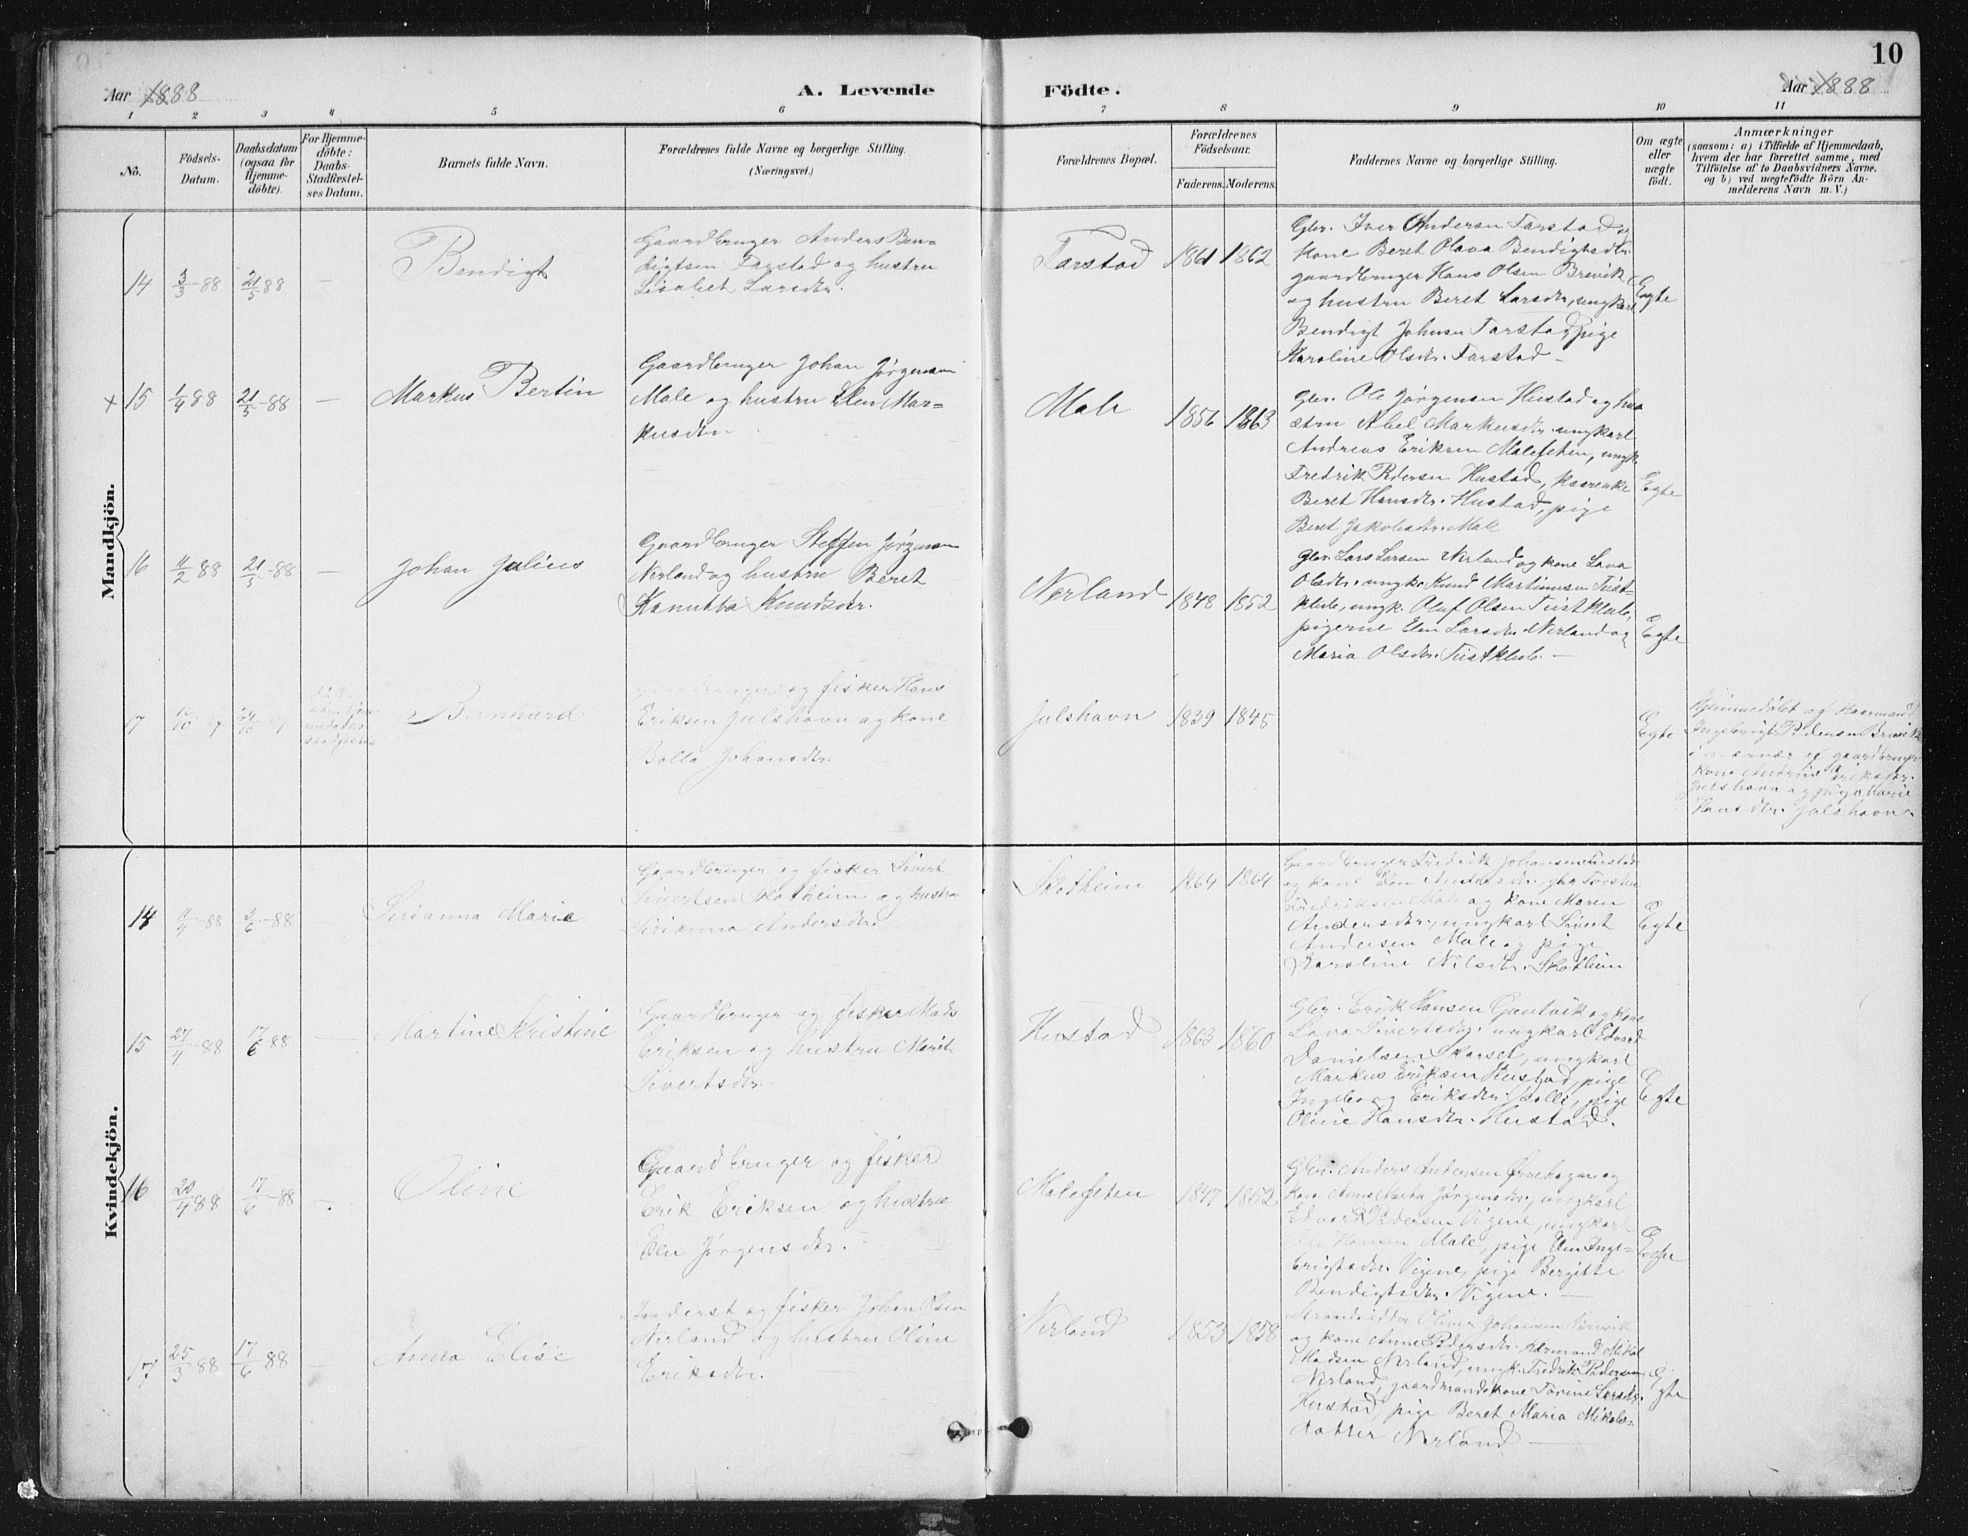 10
Aar 1888
A. Levende
Födte.
Aar 1888
1 2 3 4 5 6 7 8 9 10 11
No.
Födsels-
Datum.
Daabsdatum
(ogsaa for
Hjemme-
döbte).
For Hjemme-
döbte:
Daabs-
Stadfæstel-
ses Datum.
Barnets fulde Navn.
Forældrenes fulde Navne og borgerlige Stilling.
(Næringsvei.)
Forældrenes Bopæl.
Forældrenes
Födselsaar.
Faderens. Moderens.
Faddernes Navne og borgerlige Stilling.
Om ægte
eller
uægte
födt.
Anmærkninger
(saasom: a) i Tilfælde af Hjemmedaab,
hvem der har forrettet samme, med
Tilföielse af to Daabsvidners Navne,
og b) ved uægtefödte Börn An-
melderens Navn m. V.)
Mandkjön.
14
3/3-88
21/5 88
Bendigt
Gaardbruger Anders Ben-
digtsen Tarstad og hustru
Lisabet Larsdtr.
Tarstad
1861 1862
Gbr. Iver Andersen Tarstad,
kone Beret Olava Bendigtsdtr
gaardbruger Hans Olsen Brevik
og hustru Beret Larsdtr, ungkarl
Bendigt Johnsen Tarstad, pige
Karoline Olsdtr. Tarstad
Egte
x 15
1/4 88
21/5-88
Markus Bertin
Gaardbruger Johan Jørgensen
Male og hustru Elen Mar-
kusdtr.
Male
1856 1863
Gbr. Ole Jørgensen Hustad og hu-
stru Abel Markusdtr. ungkarl
Andreas Eriksen Malefeten, ungk.
Fredrik Pedersen Hustad,
Beret Hansdtr. Hustad, pige
Beret Jakobsdtr. Male
Egte
16
11/2 88
21/5-88
Johan Julius
Gaardbruger Steffen Jørgensen
Nerland og hustru Beret
Kanutta Knudsdtr.
Nerland
1848 1852
Gbr. Lars Larsen Nerland og kone Lava
Olsdtr. ungk. Knud Martinusen Tust-
klub, ungk. Oluf Olsen Tustklub,
pigerne Elen Larsdtr. Nerland og
Maria Olsdtr. Tustklub.
Egte
17
Bernhard
Gaardbruger og fisker Hans
Eriksen Julshavn og kone
Bolla Johansdtr.
Julshavn
1839 1845
Egte
Hjemmedøbt af
Ingebrigt Pedersen Brevik
i nærvær af gaardbruger-
kone
Julshavn og pige Marie
Hansdtr. Julshavn
Kvindekjön.
14
11/4-88
3/6-88
Sirianna Marie
Gaardbruger og fisker Sivert
Sivertsen Skotheim og hustru
Sirianna Andersdtr.
Skotheim
1864 1864
Gaardbruger Fredrik Johansen Tarstad
og kone Elen
Fredriksen Male og kone Maren
Andersdtr., ungkarl Sivert
Andersen Male og pige
Karoline Nilsdtr. Skotheim
Egte
15
27/4-88
17/6-88
Martine Kristine
Gaardbruger og fisker Mads
Eriksen og hustru Marit
Sivertsdtr.
Hustad
1863 1860
Gbr. Erik Hansen Gautvik og kone
Lava Sivertsdtr. ungkarl Edvard
Danielsen Skarset, ungkarl
Markus Eriksen Hustad, pige
Ingeborg Eriksdtr. Dolli, pige
Oline Hansdtr. Hustad.
Egte
16
20/4 88
17/6-88
Oline
Gaardbruger og fisker
Erik Eriksen og hustru
Elen Jørgensdtr.
Malefeten
1847 1852
Gbr. Anders Andersen
kone Anne Marta Jørgensdtr, ungkarl
Edvard Pedersen Vigene, ungkarl
Hansen Male, pige Elen Inge-
brigtsdtr. Vigene, pige Bergitte
Bendigtsdtr. Vigene.
Egte
17
25/3 88
17/6-88
Anna Elise
Inderst og fisker Johan Olsen
Nerland og hustru Oline
Eriksdtr.
Nerland
1853 1858
Strandsidder Oliver Johansen Brevik
og kone Anne Pedersdtr. kaarmand Mikal
Madsen Nerland, ungk. Fredrik Pedersen
Nerland, gaardmandskone Torine Larsdtr.
Hustad, pige Beret Maria Mikals-
datter Nerland
Egte